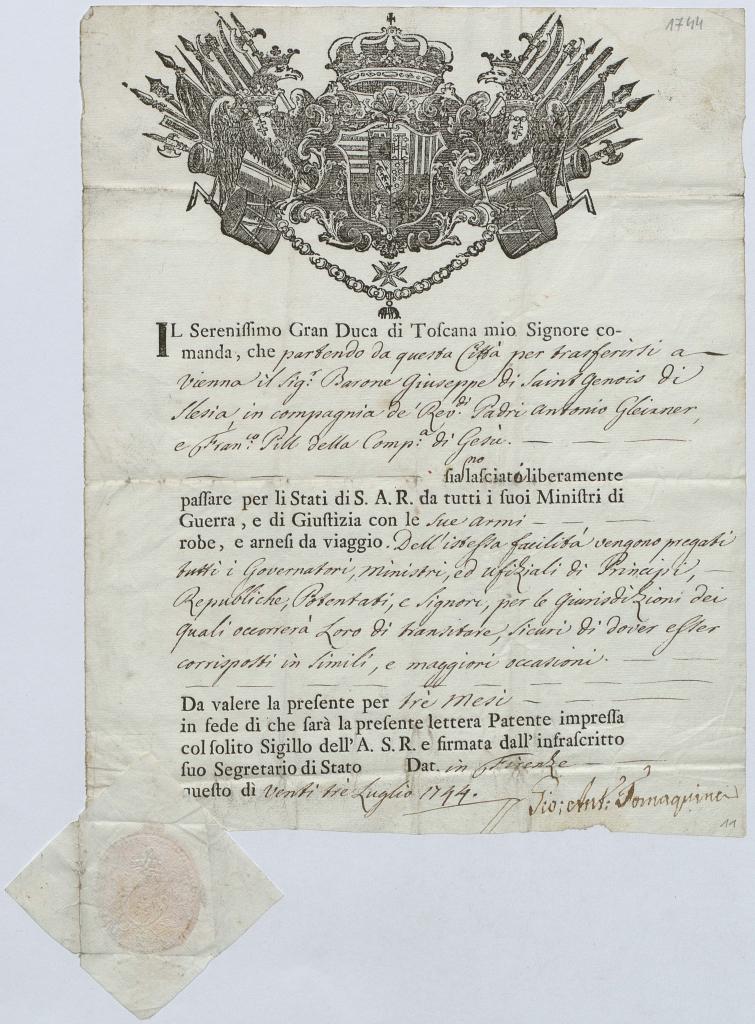 1744
IL Sereniſſimo Gran Duca di Toſcana mio Signore co-
manda, che partendo da questa Città per trasferirsi a
Vienna il Sig.r Barone Giuseppe di Saint Genois di
Slesia in compagnia de' Rev.di Padri Antonio Gleixner,
e Fran.co Pill della Comp.a di Gesù.
ſia no laſciató liberamente
paſſare per li Stati di S. A. R. da tutti i ſuoi Miniſtri di
Guerra, e di Giuſtizia con le sue armi
robe, e arneſi da viaggio. Dell'istessa facilità vengono pregati
tutti i Governatori, Ministri, ed ufiziali di Principi,
Republiche, Potentati, e Signori, per le Giurisdizioni dei
quali occorrerà Loro di transitare, sicuri di dover esser
corrisposti in simili, e maggiori occasioni.
Da valere la preſente per trè Mesi
in fede di che ſarà la preſente lettera Patente impreſſa
col ſolito Sigillo dell'A. S. R. e firmata dall'infraſcritto
ſuo Segretario di Stato Dat. in Firenze
queſto dì venti trè Luglio 1744.
Gio: Ant:
11